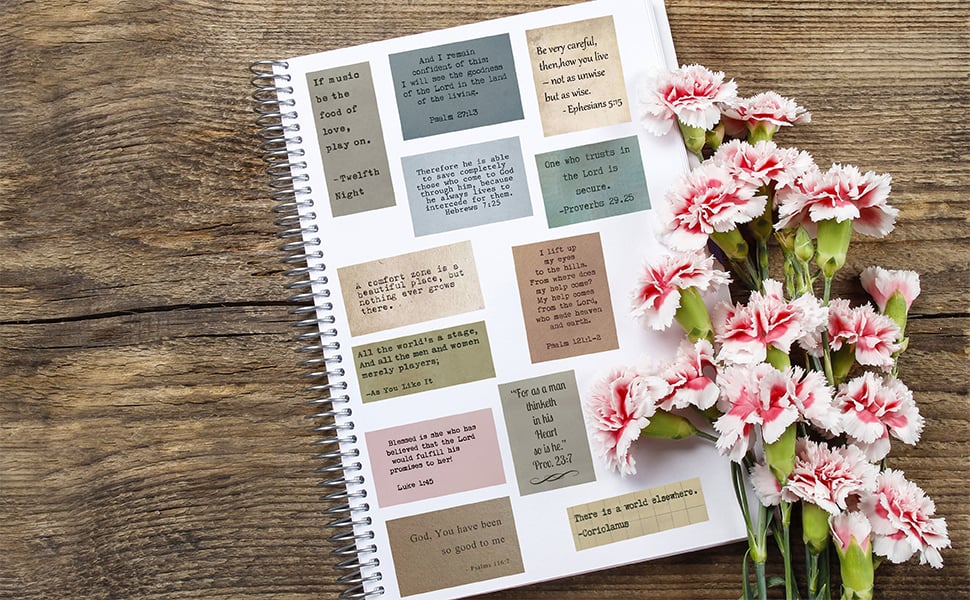 If music
be the
food of
love,
play on.
-Twelfth
Night
And I remain
confident of this:
I will see the goodness
of the Lord in the land
of the living.
Psalm 27:13
Be very careful,
then,how you live
– not as unwise
but as wise.
- Ephesians 5:15
Therefore he is able
to save completely
those who come to God
through him, because
he always lives to
intercede for them.
Hebrews 7:25
One who trusts in
the Lord is
secure.
-Proverbs 29.25
A comfort zone is a
beautiful place, but
nothing ever grows
there.
I lift up
my eyes
to the hills.
From where does
my help come?
My help comes
from the Lord,
who made heaven
and earth.
Psalm 121:1-2
All the world's a stage,
And all the men and women
merely players;
-As You Like It
"For as a man
thinketh
in his
Heart
so is he."
Prov. 23:7
Blessed is she who has
believed that the Lord
would fulfill his
promises to her!
Luke 1:45
God, You have been
so good to me
- Psalms 116:7
There is a world elsewhere.
-Coriolanus